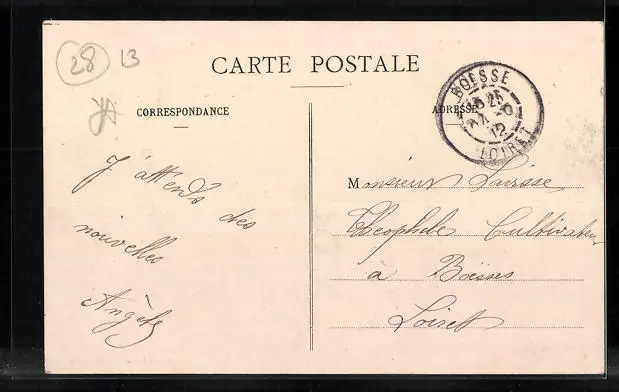 28 13
CARTE POSTALE
CORRESPONDANCE
ADRESSE
BOESSE
LOIRET
12
J'attends des
nouvelles
Angèle
Monsieur Laisse
Théophile Cultivateur
à Boësses
Loiret